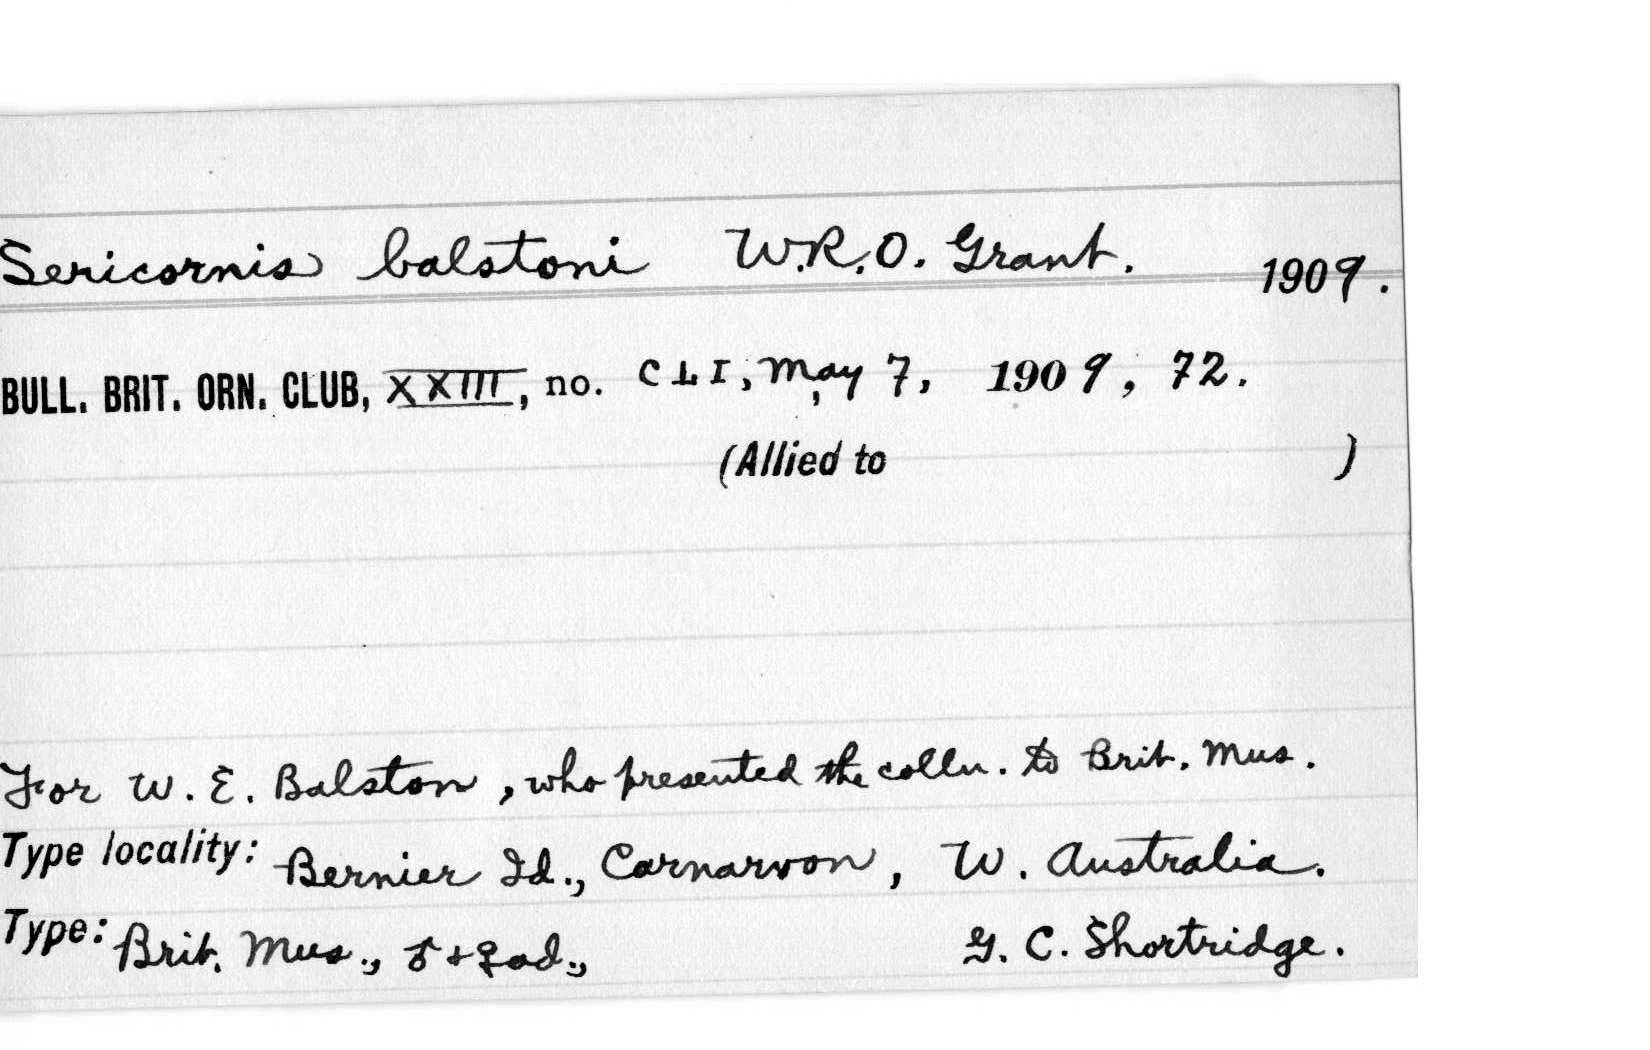 Sericornis balstoni W.R.O. Grant. 1909.
BULL. BRIT. ORN. CLUB, XXIII, no. CLI, May 7, 1909, 72.
(Allied to )
For W. E. Balston, who presented the colln. to Brit. Mus.
Type locality: Bernier Id., Carnarvon, W. Australia.
Type: Brit. Mus., ♂ + ♀ ad., G. C. Shortridge.